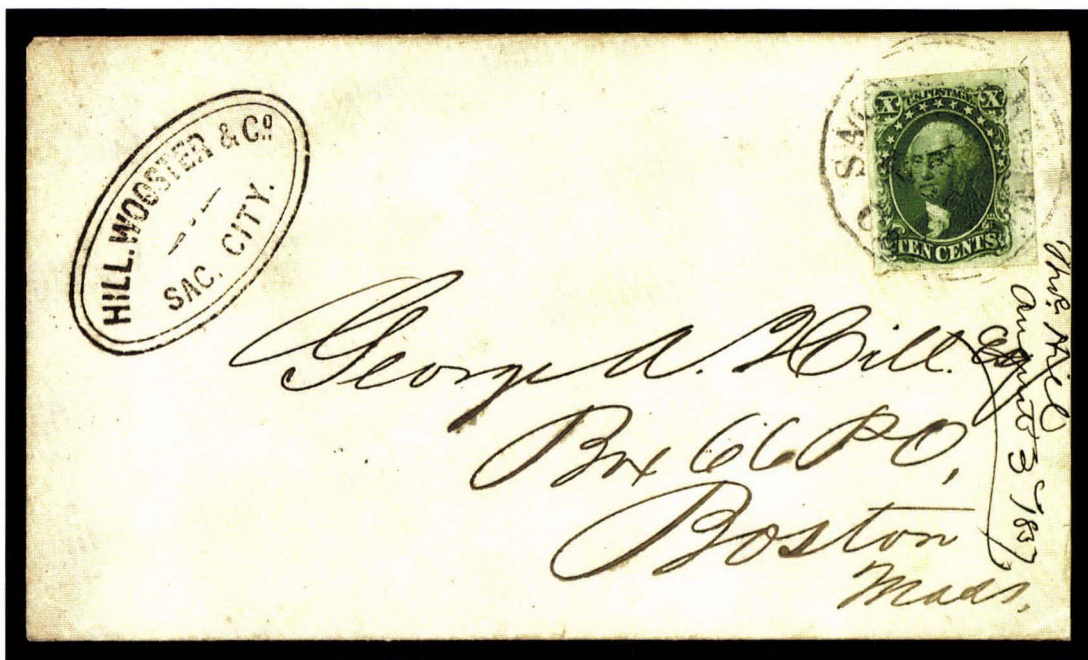 HILL. WOOSTER & Co.
SAC. CITY.
SAC
X U.S. POSTAGE. X
TEN CENTS
George A. Hill.
Box 66 P O,
Boston
Mass.
3